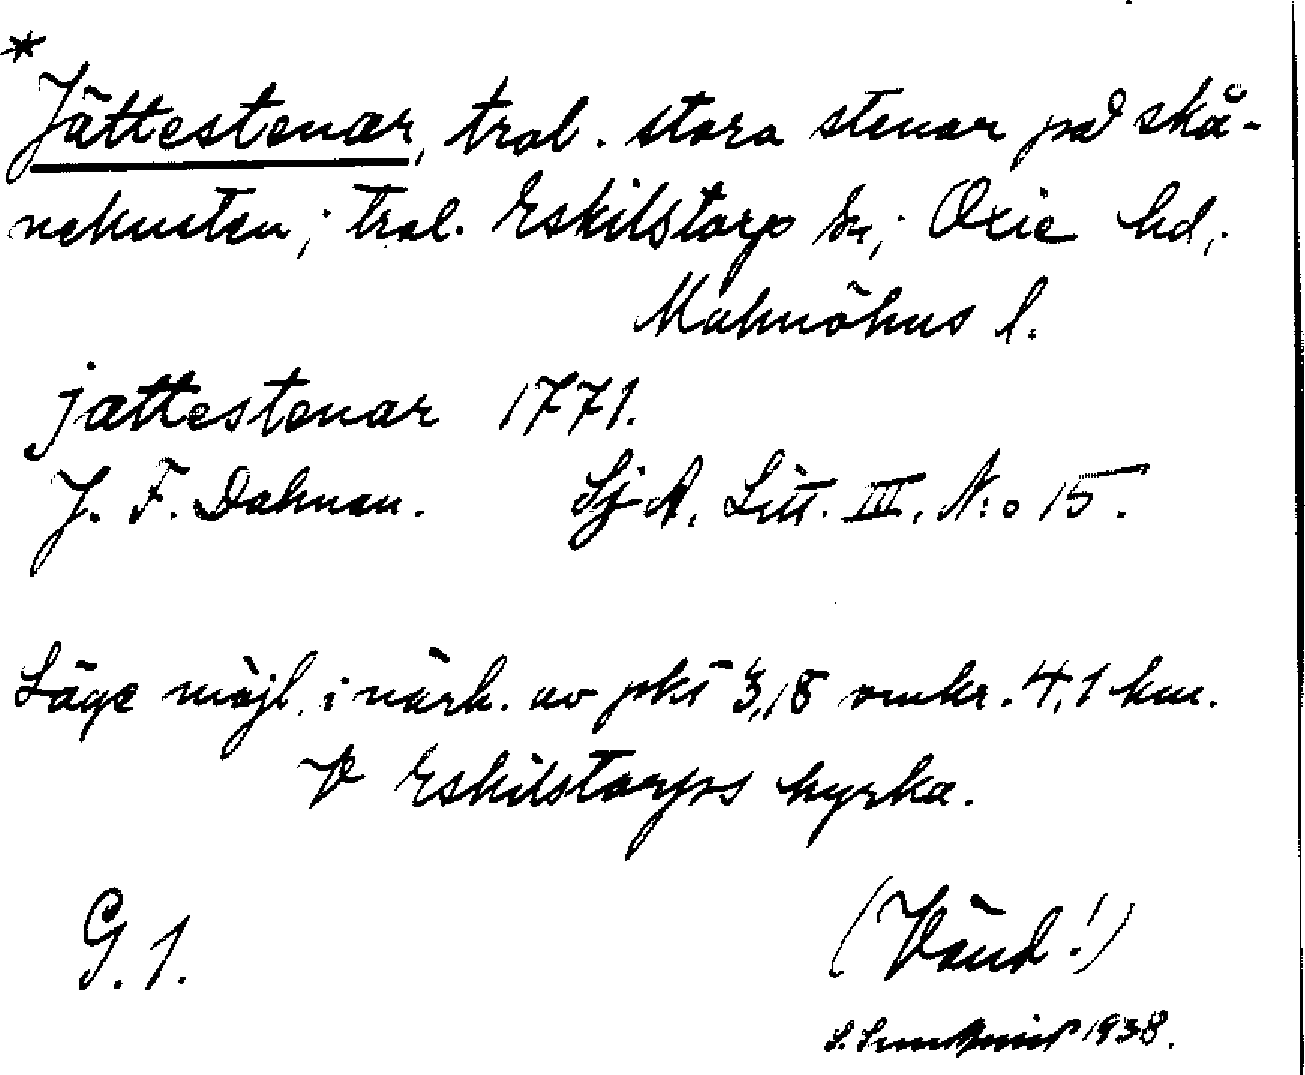 *
Jättestenar, trol. stora stenar på skå-
nekusten; trol. Eskilstorp sn; Oxie hd,
Malmöhus l.
jattestenar 1771.
J. F. Dalman. SjA. Litt. III. N:o 15.
Läge möjl. i närh. av pkt 3,18 omkr. 4,1 km.
V Eskilstorps kyrka.
G. 1.
(Vänd!)
S. 1938.